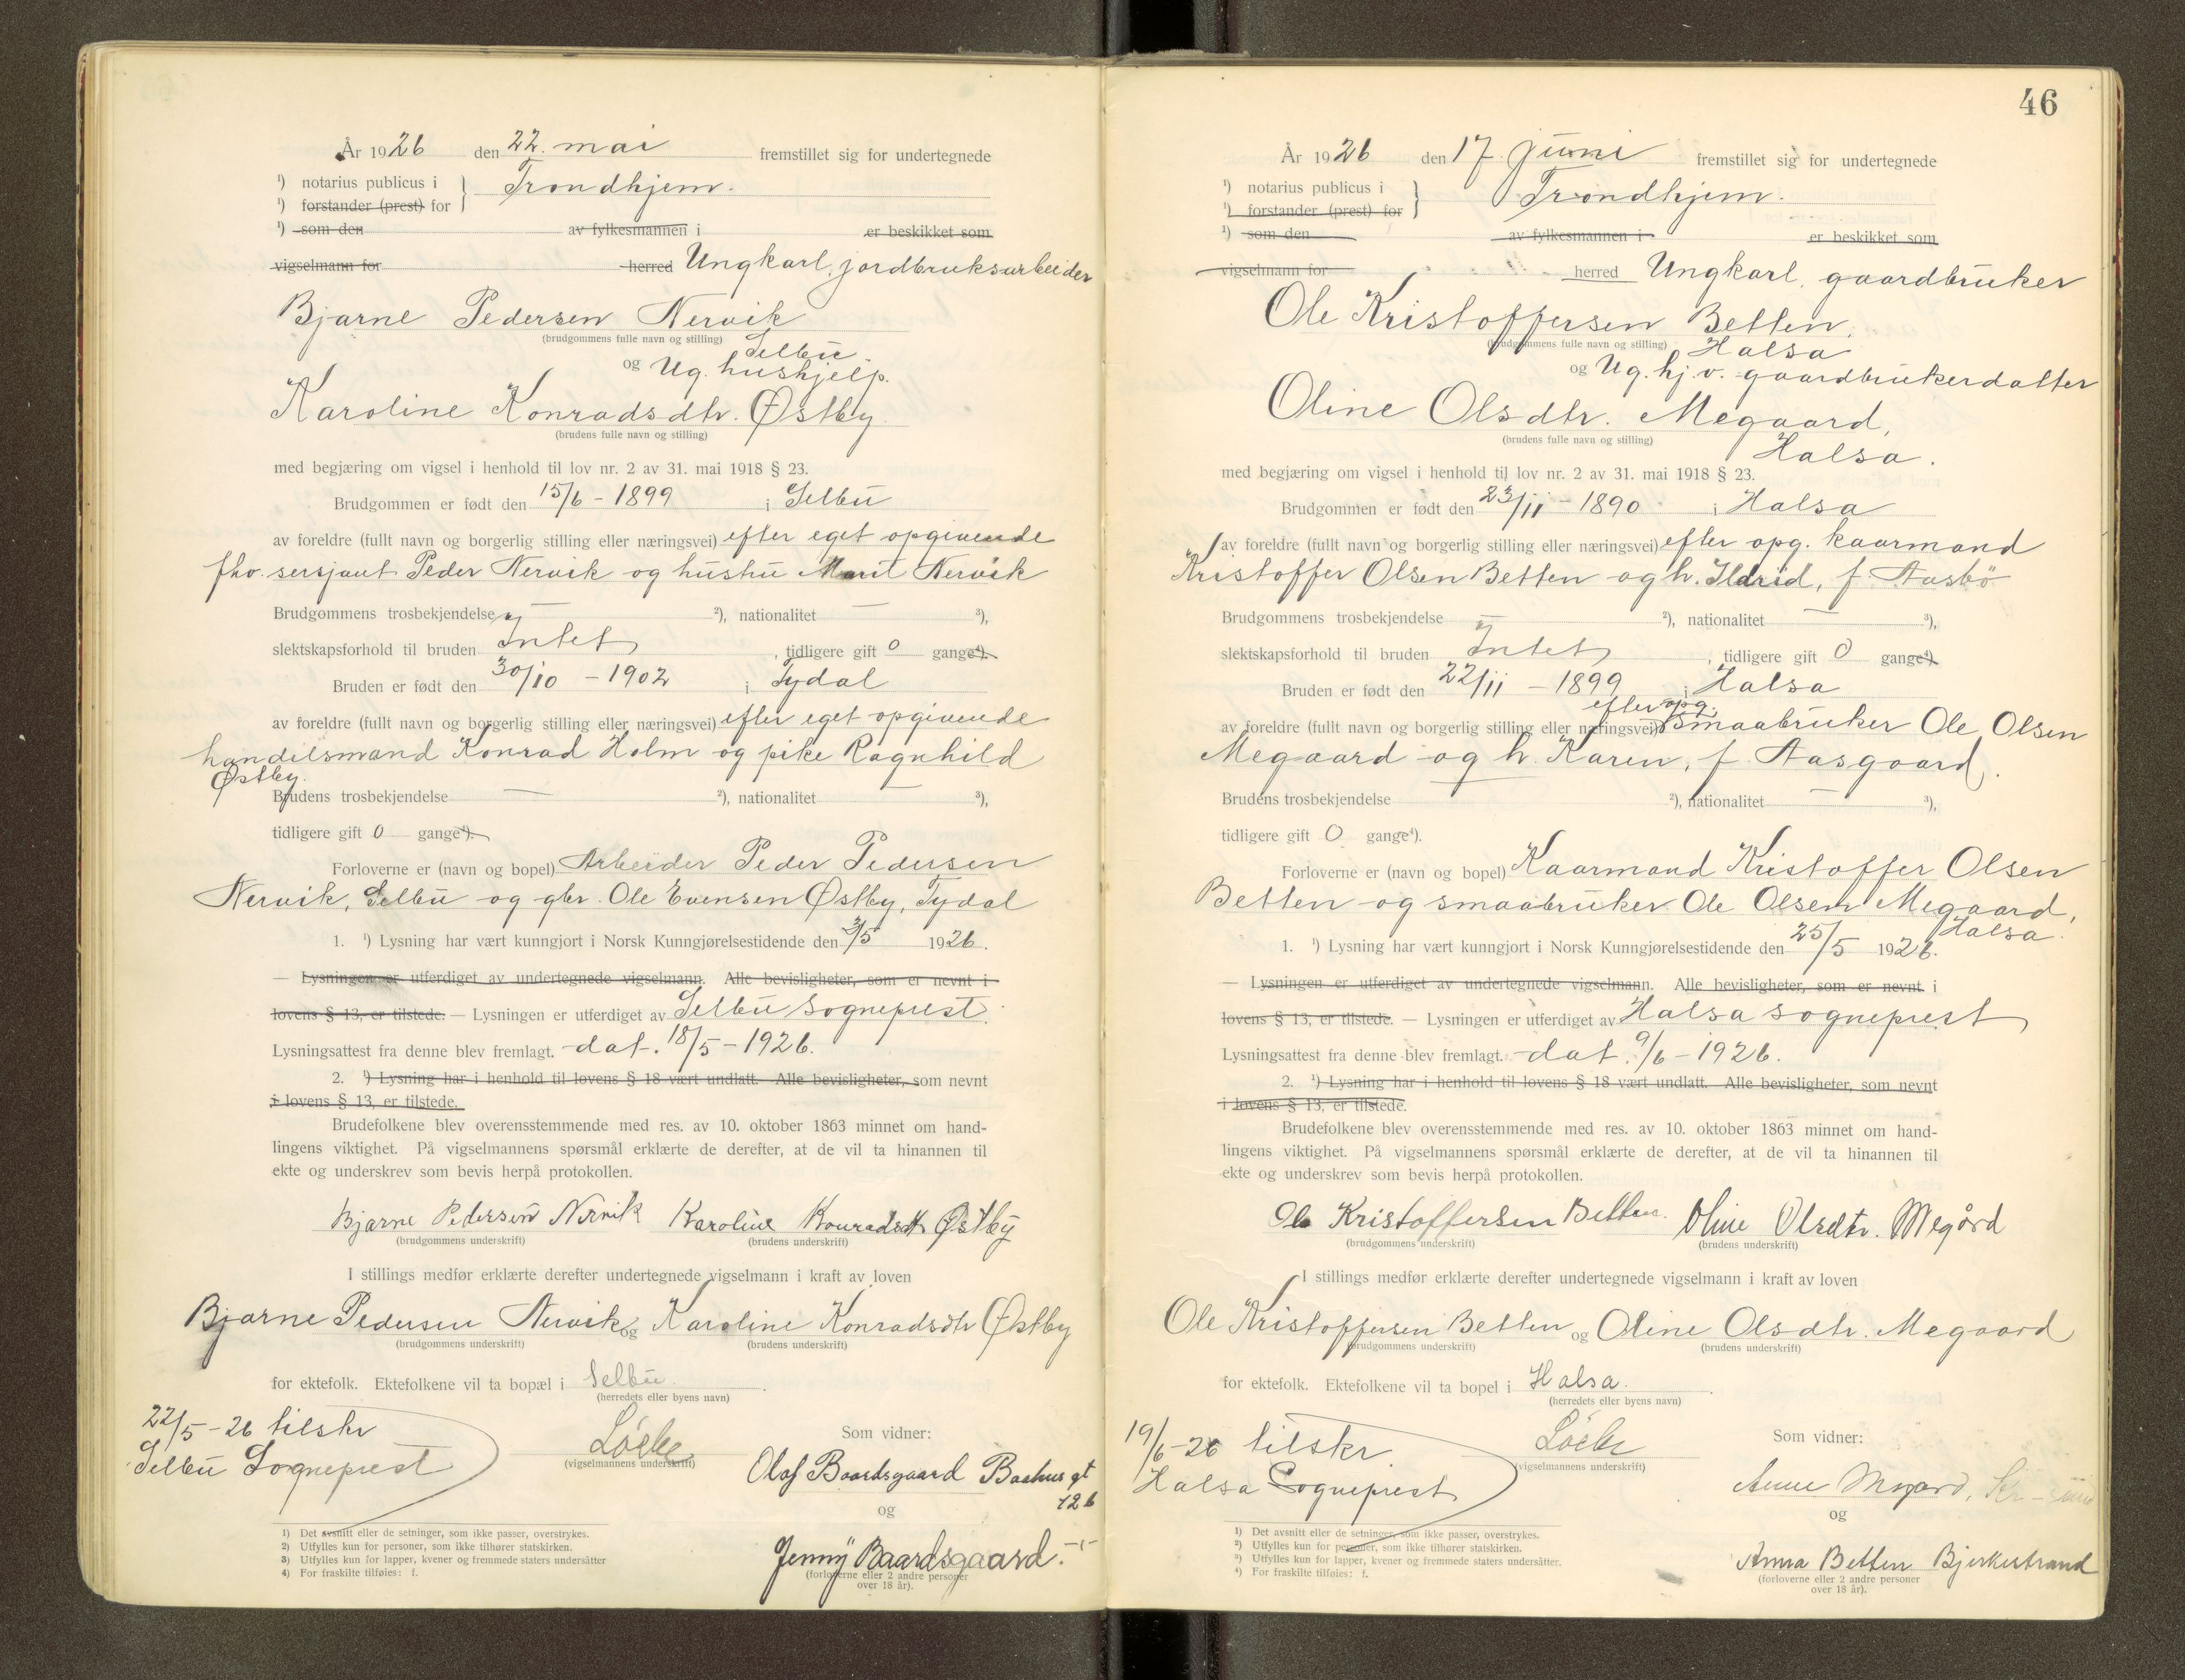 År 1926 den 22. mai fremstillet sig for undertegnede
¹) notarius publicus i } Trondhjem.
¹) forstander (prest) for
¹) som den av fylkesmannen i er beskikket som
vigselmann for herred Ungkarl, jordbruksarbeider
Bjarne Pedersen Nervik
(brudgommens fulle navn og stilling) Selbu.
og Ug. hushjelp.
Karoline Konradsdtr. Østby
(brudens fulle navn og stilling)
med begjæring om vigsel i henhold til lov nr. 2 av 31. mai 1918 § 23.
Brudgommen er født den 15/6 - 1899 i Selbu
av foreldre (fullt navn og borgerlig stilling eller næringsvei) efter eget opgivende
fhv. sersjant Peder Nervik og hustru Marit Nervik
Brudgommens trosbekjendelse — ²), nationalitet — ³),
slektskapsforhold til bruden Intet, tidligere gift 0 gange⁴).
Bruden er født den 30/10 - 1902 i Tydal
av foreldre (fullt navn og borgerlig stilling eller næringsvei) efter eget opgivende
handelsmand Konrad Holm og pike Ragnhild
Østby.
Brudens trosbekjendelse — ²), nationalitet ³),
tidligere gift 0 gange⁴).
Forloverne er (navn og bopel) Arbeider Peder Pedersen
Nervik, Selbu og gbr. Ole Evensen Østby, Tydal
1. ¹) Lysning har vært kunngjort i Norsk Kunngjørelsestidende den 3/5 1926.
— Lysningen er utferdiget av undertegnede vigselmann. Alle bevisligheter, som er nevnt i
lovens § 13, er tilstede. — Lysningen er utferdiget av Selbu sogneprest.
Lysningsattest fra denne blev fremlagt. dat. 18/5 - 1926.
2. ¹) Lysning har i henhold til lovens § 18 vært undlatt. Alle bevisligheter, som nevnt
i lovens § 13, er tilstede.
Brudefolkene blev overensstemmende med res. av 10. oktober 1863 minnet om hand-
lingens viktighet. På vigselmannens spørsmål erklærte de derefter, at de vil ta hinannen til
ekte og underskrev som bevis herpå protokollen.
Bjarne Pedersen Nervik Karoline Konradsdt Østby
(brudgommens underskrift) (brudens underskrift)
I stillings medfør erklærte derefter undertegnede vigselmann i kraft av loven
Bjarne Pedersen Nervik og Karoline Konradsdtr Østby
(brudgommens underskrift) (brudens underskrift)
for ektefolk. Ektefolkene vil ta bopæl i Selbu.
(herredets eller byens navn)
22/5 - 26 tilskr
Selbu Sogneprest
(vigselmannens underskrift)
Som vidner:
Olaf Baardsgaard Bakkus gt
12 b
og
Jenny Baardsgaard. -"-
(forloverne eller 2 andre personer
over 18 år).
1) Det avsnitt eller de setninger, som ikke passer, overstrykes.
2) Utfylles kun for personer, som ikke tilhører statskirken.
3) Utfylles kun for lapper, kvener og fremmede staters undersåtter
4) For fraskilte tilføies: f.
46
År 1926 den 17. juni fremstillet sig for undertegnede
¹) notarius publicus i } Trondhjem.
¹) forstander (prest) for
¹) som den av fylkesmannen i er beskikket som
vigselmann for herred Ungkarl, gaardbruker
Ole Kristoffersen Betten,
(brudgommens fulle navn og stilling) Halsa
og Ug. hj.v. gaardbrukerdatter
Oline Olsdtr. Megaard,
(brudens fulle navn og stilling)
Halsa.
med begjæring om vigsel i henhold til lov nr. 2 av 31. mai 1918 § 23.
Brudgommen er født den 23/11 - 1890 i Halsa
av foreldre (fullt navn og borgerlig stilling eller næringsvei) efter opg. kaarmand
Kristoffer Olsen Betten og h. Ildrid, f. Aasbö
Brudgommens trosbekjendelse — ²), nationalitet — ³),
slektskapsforhold til bruden Intet, tidligere gift 0 gange⁴)
Bruden er født den 22/11 - 1899 i Halsa
efter opg.
av foreldre (fullt navn og borgerlig stilling eller næringsvei) Smaabruker Ole Olsen
Megaard og h. Karen, f. Aasgaard.
Brudens trosbekjendelse ²), nationalitet — ³),
tidligere gift 0 gange⁴).
Forloverne er (navn og bopel) Kaarmand Kristoffer Olsen
Betten og smaabruker Ole Olsen Megaard,
Halsa.
1. ¹) Lysning har vært kunngjort i Norsk Kunngjørelsestidende den 25/5 1926.
— Lysningen er utferdiget av undertegnede vigselmann. Alle bevisligheter, som er nevnt i
lovens § 13, er tilstede. — Lysningen er utferdiget av Halsa sogneprest
Lysningsattest fra denne blev fremlagt. dat. 9/6 - 1926.
2. ¹) Lysning har i henhold til lovens § 18 vært undlatt. Alle bevisligheter, som nevnt
i lovens § 13, er tilstede.
Brudefolkene blev overensstemmende med res. av 10. oktober 1863 minnet om hand-
lingens viktighet. På vigselmannens spørsmål erklærte de derefter, at de vil ta hinannen til
ekte og underskrev som bevis herpå protokollen.
Ole Kristoffersen Betten. Oline Olsdtr. Megård
(brudgommens underskrift) (brudens underskrift)
I stillings medfør erklærte derefter undertegnede vigselmann i kraft av loven
Ole Kristoffersen Betten og Oline Olsdtr. Megaard
(brudgommens underskrift) (brudens underskrift)
for ektefolk. Ektefolkene vil ta bopel i Halsa.
(herredets eller byens navn)
19/6 - 26 tilskr.
Halsa Sogneprest
(vigselmannens underskrift)
Som vidner:
Anne Megard, Kr-sund
og
Anna Betten Bjerkestrand
(forloverne eller 2 andre personer
over 18 år).
¹) Det avsnitt eller de setninger, som ikke passer, overstrykes.
²) Utfylles kun for personer, som ikke tilhører statskirken.
³) Utfylles kun for lapper, kvener og fremmede staters undersåtter.
⁴) For fraskilte tilføies: f.